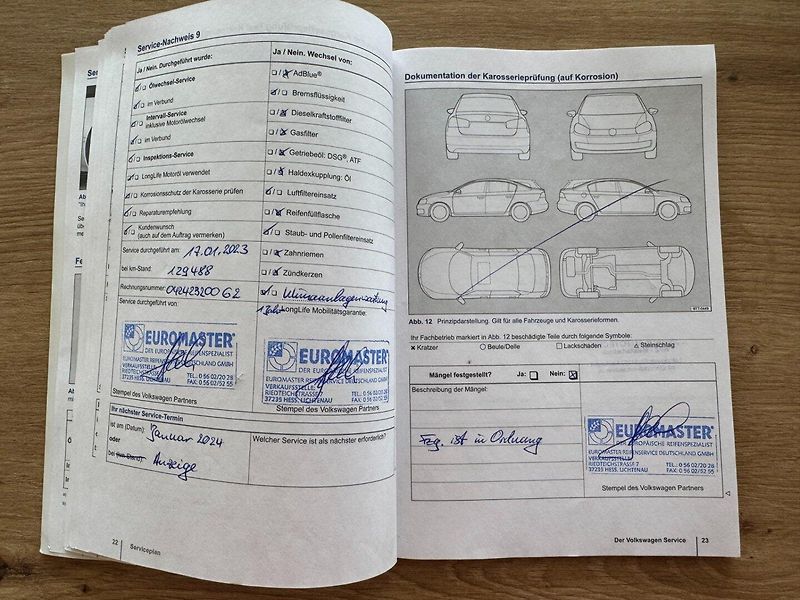 Service-Nachweis 9
Ja / Nein. Durchgeführt wurde:
Ölwechsel-Service
im Verbund
Intervall-Service
inklusive Motorölwechsel
im Verbund
Inspektions-Service
LongLife Motoröl verwendet
Korrosionsschutz der Karosserie prüfen
Reparaturempfehlung
Kundenwunsch
(auch auf dem Auftrag vermerken)
Service durchgeführt am: 17.01.2023
bei km-Stand: 129488
Rechnungsnummer:
Service durchgeführt von:
EUROMASTER
DER EUROPÄISCHE REIFENSPEZIALIST
EUROMASTER REIFENSERVICE DEUTSCHLAND GMBH
VERKAUFSSTELLE:
RIEDTEICHSTRASSE 7
37235 HESS. LICHTENAU
TEL.: 0 56 02/20 28
FAX: 0 56 02/52 55
Stempel des Volkswagen Partners
Ihr nächster Service-Termin
ist am (Datum): Januar 2024
oder
bei (km-Stand): Anzeige
Ja / Nein. Wechsel von:
AdBlue®
Bremsflüssigkeit
Dieselkraftstofffilter
Gasfilter
Getriebeöl: DSG®, ATF
Haldexkupplung: Öl
Luftfiltereinsatz
Reifenfüllflasche
Staub- und Pollenfiltereinsatz
Zahnriemen
Zündkerzen
Klimaanlagenwartung
LongLife Mobilitätsgarantie:
EUROMASTER
DER EUROPÄISCHE REIFENSPEZIALIST
EUROMASTER REIFENSERVICE DEUTSCHLAND GMBH
VERKAUFSSTELLE:
RIEDTEICHSTRASSE 7
37235 HESS. LICHTENAU
TEL.: 0 56 02/20 28
FAX: 0 56 02/52 55
Stempel des Volkswagen Partners
Welcher Service ist als nächster erforderlich?
22 Serviceplan
Dokumentation der Karosserieprüfung (auf Korrosion)
Abb. 12 Prinzipdarstellung. Gilt für alle Fahrzeuge und Karosserieformen.
Ihr Fachbetrieb markiert in Abb. 12 beschädigte Teile durch folgende Symbole:
× Kratzer ○ Beule/Delle □ Lackschaden △ Steinschlag
Mängel festgestellt? Ja: Nein:
Beschreibung der Mängel:
Fzg. ist in Ordnung
EUROMASTER
DER EUROPÄISCHE REIFENSPEZIALIST
EUROMASTER REIFENSERVICE DEUTSCHLAND GMBH
VERKAUFSSTELLE:
RIEDTEICHSTRASSE 7
37235 HESS. LICHTENAU
TEL.: 0 56 02/20 28
FAX: 0 56 02/52 55
Stempel des Volkswagen Partners
Der Volkswagen Service 23